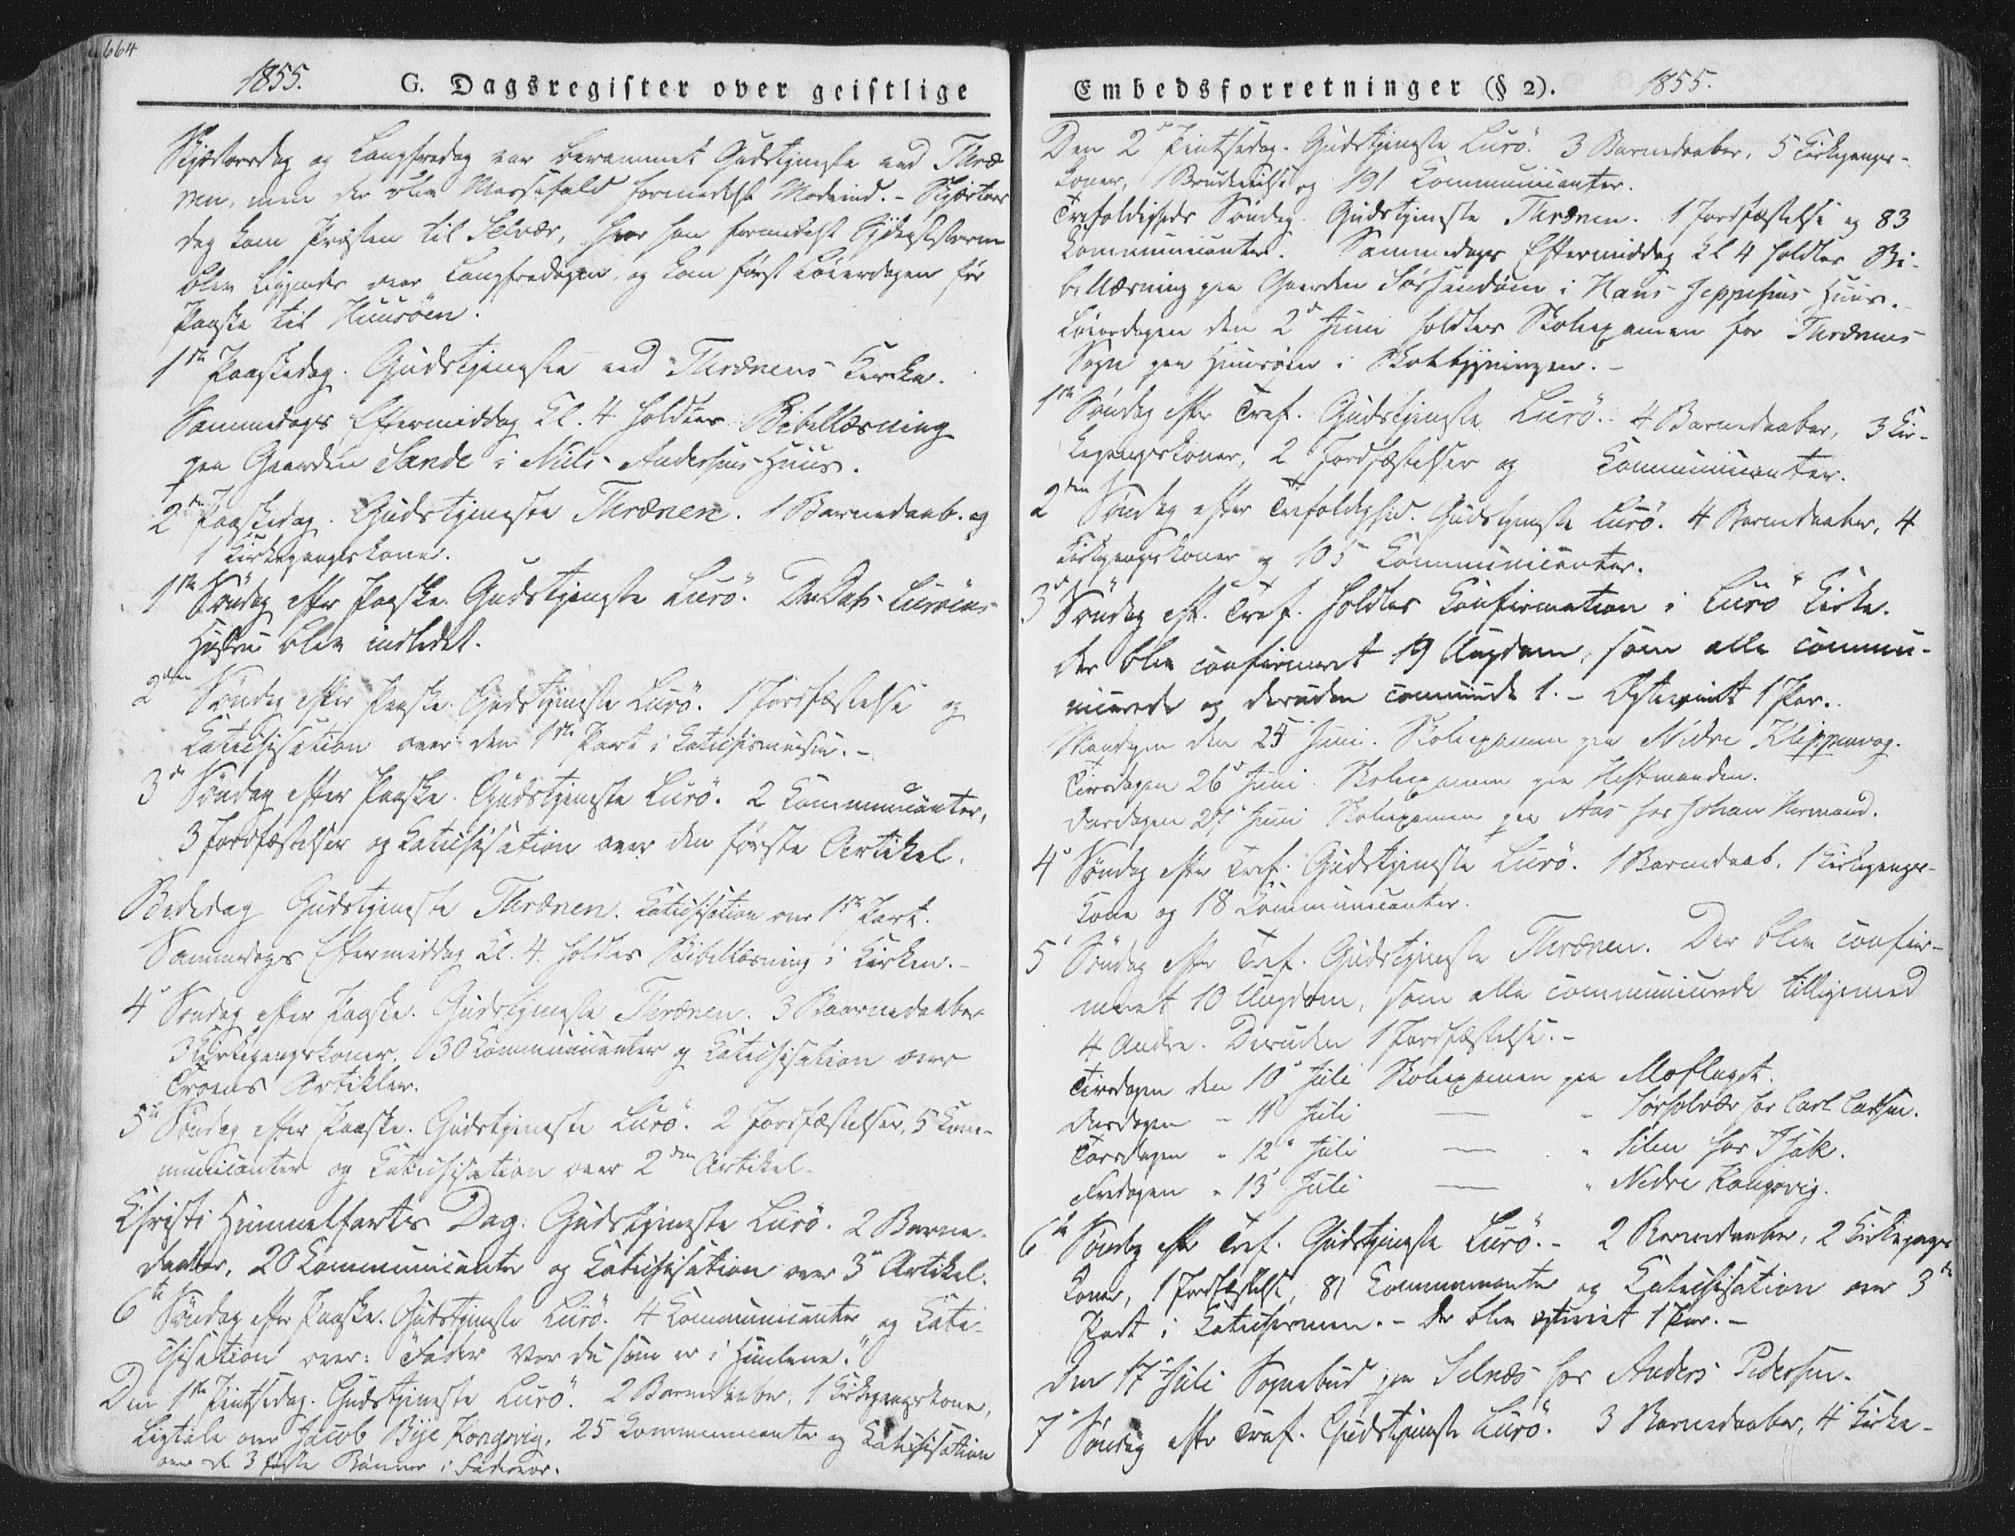 664
1855.
G. Dagsregister over geistlige
Skjærtorsdag og Langfredag var berammet Gudstjeneste ved Thræ
nen, men der blev Messefald formedelst Modvind. - Skjærtors
dag kom Præsten til Selvær, hvor han formedelst
blev liggende over Langfredagen, og kom først Løverdagen før
Paaske til Huusöen.
1ste Paaskedag. Gudstjeneste ved Thrænens Kirke.
Sammedags Eftermiddag Kl. 4 holdtes Bibellæsning
paa Gaarden Sande i Niels Andersens Huus.
2den Paaskedag. Gudstjeneste Thrænen. 1 Barnedaab og
1 Kirkegangskone.
1ste Søndag efter Paaske. Gudstjeneste Lurö. Lurøens
Hustru blev indledet.
2den Søndag efter Paaske. Gudstjeneste Lurö. 1 Jordfæstelse og
Catechisation over den 1ste Part i Catechismusen. -
3e Søndag efter Paaske. Gudstjeneste Lurö. 2 Communicanter,
3 Jordfæstelser og Catechisation over den første Artikel.
Bededag Gudstjeneste Thrænen. Catechisation over 1ste Part.
Sammedags Eftermiddag Kl. 4. holdtes Bibellæsning i Kirken. -
4e Søndag efter Paaske. Gudstjeneste Thrænen. 3 Baarnedaaber
3 Kirkegangskoner, 30 Communicanter og Catechisation over
Troens Artikler.
5te Søndag efter Paaske. Gudstjeneste Lurö. 2 Jordfæstelser, 5 Com-
municanter og Catechisation over 2den Artikel.
Christi Himmelfarts Dag. Gudstjeneste Lurö. 2 Barne-
daaber, 20 Communicanter og Catechisation over 3e Artikel.
6te Søndag efter Paaske. Gudstjeneste Lurö. 4 Communicanter og Cate-
chisation over: "Fader vor du som er i Himlene."
Den 1ste Pintsedag. Gudstjeneste Lurö. 2 Barnedaaber, 1 Kirkegangskone,
Ligtale over Jacob Bye Kongsvig, 25 Communicanter og Catechisation
over de 3 første Bönner i Fadervor.
Embedsforretninger (§ 2).
1855.
Den 2e Pintsedag. Gudstjeneste Lurö. 3 Barnedaaber, 5 Kirkegangs-
koner, 1 Brudevielse og 191 Communicanter.
Trefoldigheds Søndag. Gudstjeneste Thrænen. 1 Jordfæstelse og 83
Communicanter. Sammedags Eftermiddag Kl 4 holdtes Bi-
bellæsning paa Gaarden i Hans Jeppesens Huus.
Løverdagen den 2e Juni holdtes Skoleexamen for Thrænens
Sogn paa Huusöen i
1ste Søndag efter Tref. Gudstjeneste Lurö. 4 Barnedaaber, 3 Kir-
kegangskoner, 2 Jordfæstelser og Communicanter.
2den Søndag efter Trefoldighed. Gudstjeneste Lurö. 4 Barnedaaber, 4
Kirkegangskoner og 105 Communicanter.
3e Søndag eft. Tref. holdtes Confirmation i Lurö Kirke.
Der blev confirmeret 19 Ungdom, som alle commu-
nicerede og desuden 1. - 1 Par.
Mandagen den 25 Juni. Skoleexamen paa Nedre Klippenvog.
Tirsdagen 26e Juni. Skoleexamen paa Hestmanden.
Onsdagen 27e Juni Skoleexamen paa Aas hos Johan
4e Søndag efter Tref. Gudstjeneste Lurö. 1 Barnedaab, 1 Kirkegangs-
kone og 18 Communicanter.
5e Søndag efter Tref. Gudstjeneste Thrænen. Der blev confir-
meret 10 Ungdom, som alle communicerede tilligemed
4 Andre. Desuden 1 Jordfæstelse. -
Tirsdagen den 10e Juli Skoleexamen paa Moflaget.
Onsdagen - 11e Juli — " Sørsolvær hos Carl
Torsdagen " 12e Juli — " Silen hos Isak.
Fredagen " 13e Juli — " Nedre Kongsvig.
6te Søndag efter Tref. Gudstjeneste Lurö. - 2 Barnedaaber, 2 Kirkegangs
koner, 1 Jordfæstelse, 81 Communicanter og Catechisation over 3die
Part i Catechismen. - Der blev 1 Par. -
Den 17e Juli Sognebud paa Selnæs hos Anders Pedersen.
7e Søndag efter Tref. Gudstjeneste Lurö. 3 Barnedaaber, 4 Kirke-